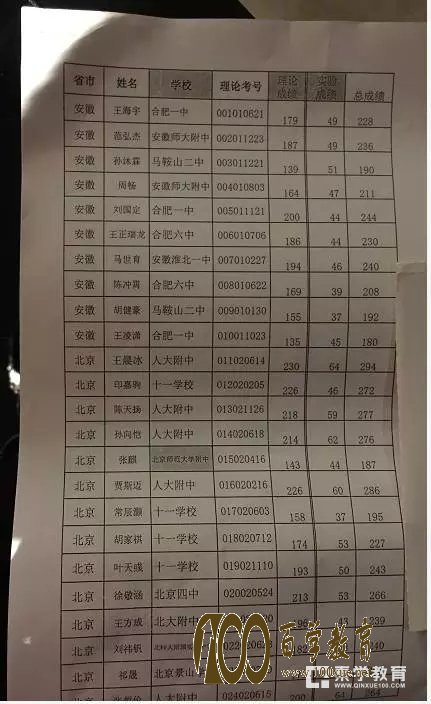 省市 姓名 学校 理论考号 理论成绩 实验成绩 总成绩
安徽 王海宇 合肥一中 001010621 179 49 228
安徽 范弘杰 安徽师大附中 002011223 187 49 236
安徽 孙沐霖 马鞍山二中 003011221 139 51 190
安徽 周畅 安徽师大附中 004010803 164 47 211
安徽 刘国定 合肥一中 005011121 200 44 244
安徽 王正瑞龙 合肥六中 006010706 186 44 230
安徽 马世育 安徽淮北一中 007010227 194 46 240
安徽 陈冲周 合肥六中 008010622 169 39 208
安徽 胡健豪 马鞍山二中 009010130 155 37 192
安徽 王凌潇 合肥一中 010011023 135 45 180
北京 王晨冰 人大附中 011020614 230 64 294
北京 印嘉驹 十一学校 012020205 226 46 272
北京 陈天扬 人大附中 013021126 218 59 277
北京 孙向恺 人大附中 014020618 214 62 276
北京 张麒 北京师范大学附中 015020416 143 44 187
北京 贾斯迈 人大附中 016020216 226 60 286
北京 常辰灏 十一学校 017020603 158 37 195
北京 胡家祺 十一学校 018020712 174 53 227
北京 叶天彧 十一学校 019021110 193 50 243
北京 徐敬涵 北京四中 020020524 213 53 266
北京 王方成 北大附中 196 43 239
北京 刘祎帆 182 240
北京 祁晟 北京景山
北京 人大附中 024020615 200 64 264
100百学教育
亲学教育
WWW.QINXUE100.COM